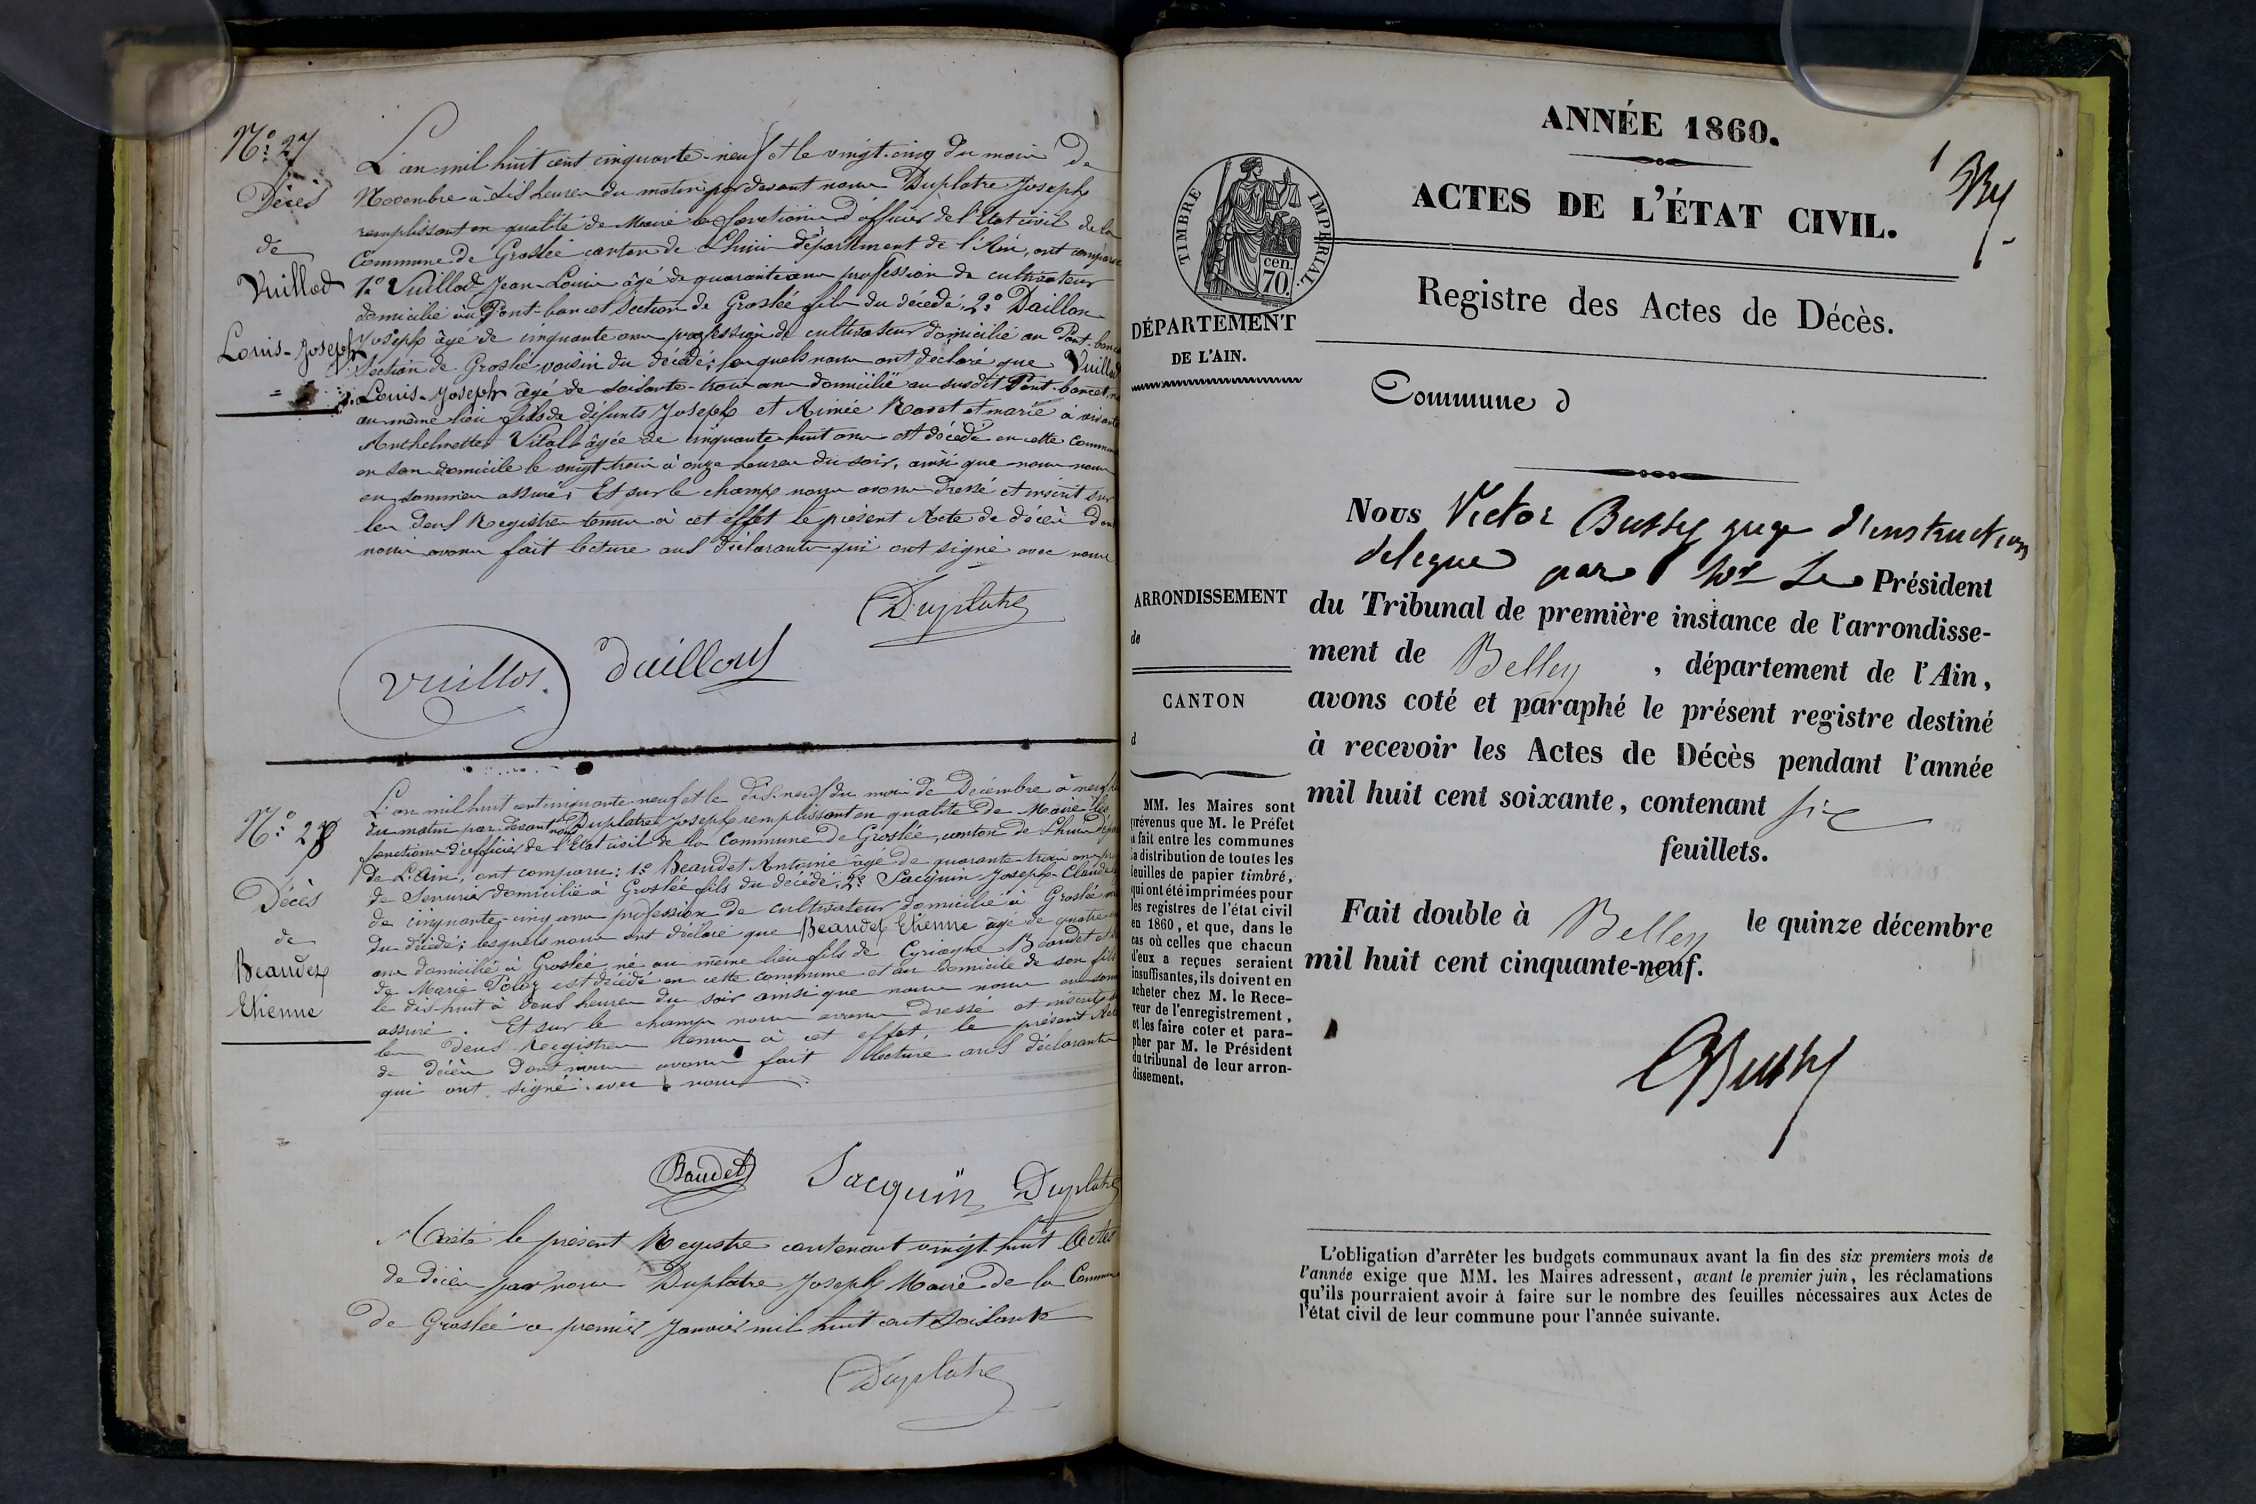 N.º 27
Décès
de
Vuillod
Louis-Joseph
L'an mil huit cent cinquante-neuf et le vingt-cinq du mois de
Novembre à dix heures du matin par devant nous Duplatre Joseph
remplissant en qualité de Maire les fonctions d'officier de l'Etat civil de la
Commune de Groslée canton de Lhuis département de l'Ain, ont comparu
1.º Vuillod Jean-Louis âgé de quarante ans profession de cultivateur
domicilié au Pont-bancet section de Groslée fils du décédé, 2.º Daillon
Joseph âgé de cinquante ans profession de cultivateur domicilié au Pont-bancet
Section de Groslée voisin du décédé; lesquels nous ont déclaré que Vuillod
Louis-Joseph âgé de soixante-trois ans domicilié au susdit Pont-bancet, né
au même lieu fils de défunts Joseph et Aimée Ravet et marié à vivante
Anthelmette Vital âgée de cinquante-huit ans est décédé en cette commune
en son domicile le vingt-trois à onze heures du soir, ainsi que nous nous
en sommes assuré; Et sur le champ nous avons dressé et inscrit sur
les deux Registres tenus à cet effet le présent Acte de décès dont
nous avons fait lecture aux déclarants qui ont signé avec nous
Duplatre
Vuillod.
Daillon
N.º 28
Décès
de
Beaudet
Etienne
L'an mil huit cent cinquante-neuf et le dix-neuf du mois de Décembre à neuf
du matin par devant nous Duplatre Joseph remplissant en qualité de Maire les
fonctions d'officier de l'Etat civil de la Commune de Groslée, canton de Lhuis
de L'Ain, ont comparu: 1.º Beaudet Antoine âgé de quarante-trois ans
de Serrurier domicilié à Groslée fils du décédé; 2.º Jacquin Joseph-Claude
de cinquante-cinq ans profession de cultivateur domicilié à Groslée
du décédé; lesquels nous ont déclaré que Beaudet Etienne âgé de quatre
ans domicilié à Groslée né au même lieu fils de Cyriaque Beaudet et
de Marie Poloz est décédé en cette commune et au domicile de son fils
le dix-huit à deux heures du soir ainsi que nous nous en sommes
assuré. Et sur le champ nous avons dressé et inscrit
les deux Registres tenus à cet effet le présent Acte
de décès dont nous avons fait lecture aux déclarants
qui ont signé avec nous
Baudet
Jacquin
Duplatre
Arrêté le présent Registre contenant vingt-huit Actes
de décès par nous Duplatre Joseph Maire de la Commune
de Groslée ce premier Janvier mil huit cent soixante
Duplatre
ANNÉE 1860.
1
ACTES DE L'ÉTAT CIVIL.
TIMBRE IMPÉRIAL.
cen.
70.
Registre des Actes de Décès.
DÉPARTEMENT
DE L'AIN.
Commune d
Nous Victor Bussy juge d'instruction
délégué par Mr Le Président
ARRONDISSEMENT
de
du Tribunal de première instance de l'arrondisse-
ment de Belley, département de l'Ain,
CANTON
d
avons coté et paraphé le présent registre destiné
à recevoir les Actes de Décès pendant l'année
mil huit cent soixante, contenant six
feuillets.
MM. les Maires sont
prévenus que M. le Préfet
a fait entre les communes
la distribution de toutes les
feuilles de papier timbré,
qui ont été imprimées pour
les registres de l'état civil
en 1860, et que, dans le
cas où celles que chacun
d'eux a reçues seraient
insuffisantes, ils doivent en
acheter chez M. le Rece-
veur de l'enregistrement,
et les faire coter et para-
pher par M. le Président
du tribunal de leur arron-
dissement.
Fait double à Belley le quinze décembre
mil huit cent cinquante-neuf.
Bussy
L'obligation d'arrêter les budgets communaux avant la fin des six premiers mois de
l'année exige que MM. les Maires adressent, avant le premier juin, les réclamations
qu'ils pourraient avoir à faire sur le nombre des feuilles nécessaires aux Actes de
l'état civil de leur commune pour l'année suivante.